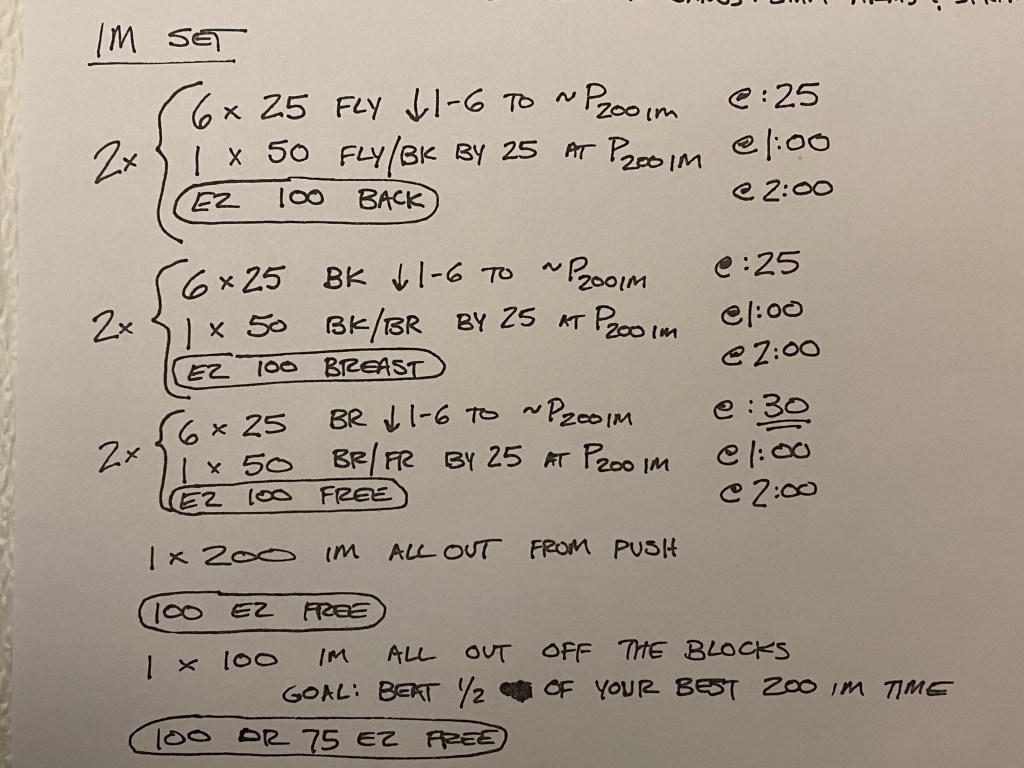 IM SET
2x { 6 x 25 FLY ↓1-6 TO ~P200 IM @ :25
1 x 50 FLY/BK BY 25 AT P200 IM @ 1:00
EZ 100 BACK @ 2:00
2x { 6 x 25 BK ↓1-6 TO ~P200 IM @ :25
1 x 50 BK/BR BY 25 AT P200 IM @ 1:00
EZ 100 BREAST @ 2:00
2x { 6 x 25 BR ↓1-6 TO ~P200 IM @ :30
1 x 50 BR/FR BY 25 AT P200 IM @ 1:00
EZ 100 FREE @ 2:00
1 x 200 IM ALL OUT FROM PUSH
100 EZ FREE
1 x 100 IM ALL OUT OFF THE BLOCKS
GOAL: BEAT 1/2 OF YOUR BEST 200 IM TIME
100 OR 75 EZ FREE